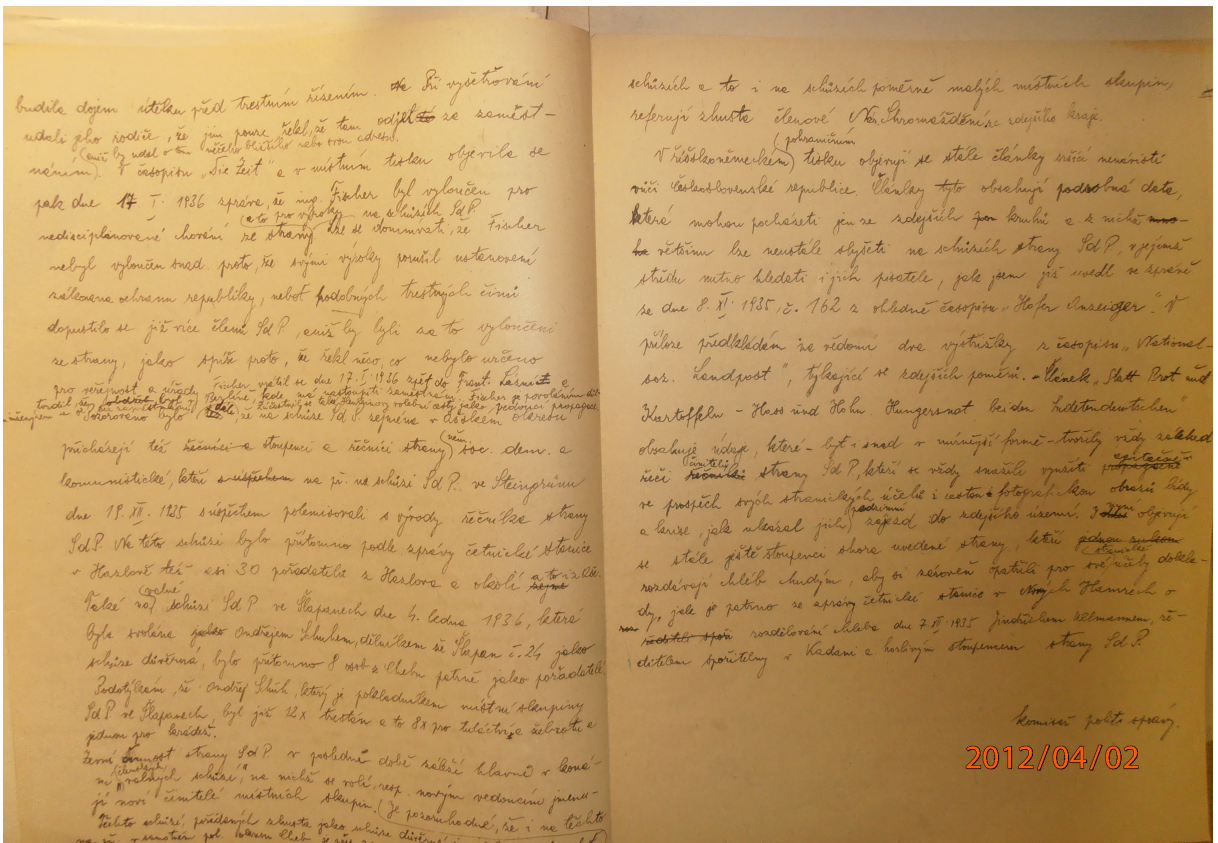 budila dojem útěku před trestním řízením. Při vyšetřování
udali jeho rodiče, že jim pouze řekl, že tam odjel za zaměst-
(aniž by udal o tom něčeho bližšího nebo svou adresu
náním). V časopisu „Die Zeit" a v místním tisku objevila se
pak dne 17 I. 1936 zpráva, že ing. Fischer byl vyloučen pro
(a to pro výroky na schůzích SdP.
nedisciplinované chování ze strany lze se domnívati, že Fischer
nebyl vyloučen snad proto, že svými výroky porušil ustanovení
zákona na ochranu republiky, neboť podobných trestných činů
dopustilo se již více členů SdP, aniž by byli za to vyloučeni
ze strany, jako spíše proto, že řekl něco, co nebylo určeno
pro veřejnost a úřady. Fischer vrátil se dne 17. I. 1936 zpět do Frant. Lázní a
tvrdil, že v Berlíně, kde má nastoupiti zaměstnání. Fischer je povoláním
Pozorováno bylo též, že na schůze SdP. zejména v Ašském okresu
přicházejí též stoupenci a řečníci strany něm. soc. dem. a
komunistické, kteří na př. na schůzi SdP. ve Steingrünu
dne 19. XII. 1935 polemisovali s vývody řečníka strany
SdP. Na této schůzi bylo přítomno podle zprávy četnické stanice
v Hazlově též asi 30 pořadatelů z Hazlova a okolí a to i z Aše.
Také na (valné schůzi SdP ve Šlapanech dne 4. ledna 1936, která
byla svolána Ondřejem Schuhem, dělníkem ze Šlapan č. 24 jako
schůze důvěrná, bylo přítomno 8 osob z Chebu patrně jako pořadatelé
Podotýkám, že Ondřej Schuh, který je pokladníkem místní skupiny
SdP ve Šlapanech, byl již 12x trestán a to 8x pro tuláctví a žebrotu a
jednou pro krádež.
Zevní činnost strany SdP v poslední době záleží hlavně v koná-
ní „valných schůzí", na nichž se volí, resp. novým vedoucím jmenu-
jí noví činitelé místních skupin. (Je pozoruhodné, že i na těchto
Těchto schůzí, pořádaných zhusta jako schůze důvěrné
schůzích a to i na schůzích poměrně malých místních skupin,
referují zhusta členové Nár. Shromáždění ze zdejšího kraje.
(pohraničním
V říšskoněmeckém) tisku objevují se stále články sršící nenávistí
vůči Československé republice. Články tyto obsahují podrobná data,
která mohou pocházeti jen ze zdejších kruhů a z nichž
většinu lze neustále slyšeti na schůzích strany SdP, v jejímž
středu nutno hledati i jich pisatele, jak jsem již uvedl ve zprávě
ze dne 8. XI. 1935, č. 162 z ohledně časopisu „Hofer Anzeiger". V
příloze předkládám na vědomí dva výstřižky z časopisu „National-
soz. Landpost", týkající se zdejších poměrů. – Článek „Statt Brot und
Kartoffeln – Hass und Hohn. Hungersnot bei den Sudetendeutschen"
obsahuje údaje, které – byť i snad v mírnější formě – tvořily vždy základ
řečí činitelů strany SdP, kteří se vždy snažili využíti
ve prospěch svých stranických účelů i cestou fotografickou obrazů bídy
a krise, jak ukázal jich podzimní zájezd do zdejšího území. objevují
se stále ještě stoupenci shora uvedené strany, kteří
rozdávají chléb chudým, aby si zároveň opatřili pro své účely dokla-
dy, jak je patrno ze zprávy četnické stanice v Nových Hamrech o
rozdělování chleba dne 7. XII. 1935 Jindřichem Allmannem, ře-
ditelem spořitelny v Kadani a horlivým stoupencem strany SdP.
komisař polit. správy.
2012/04/02